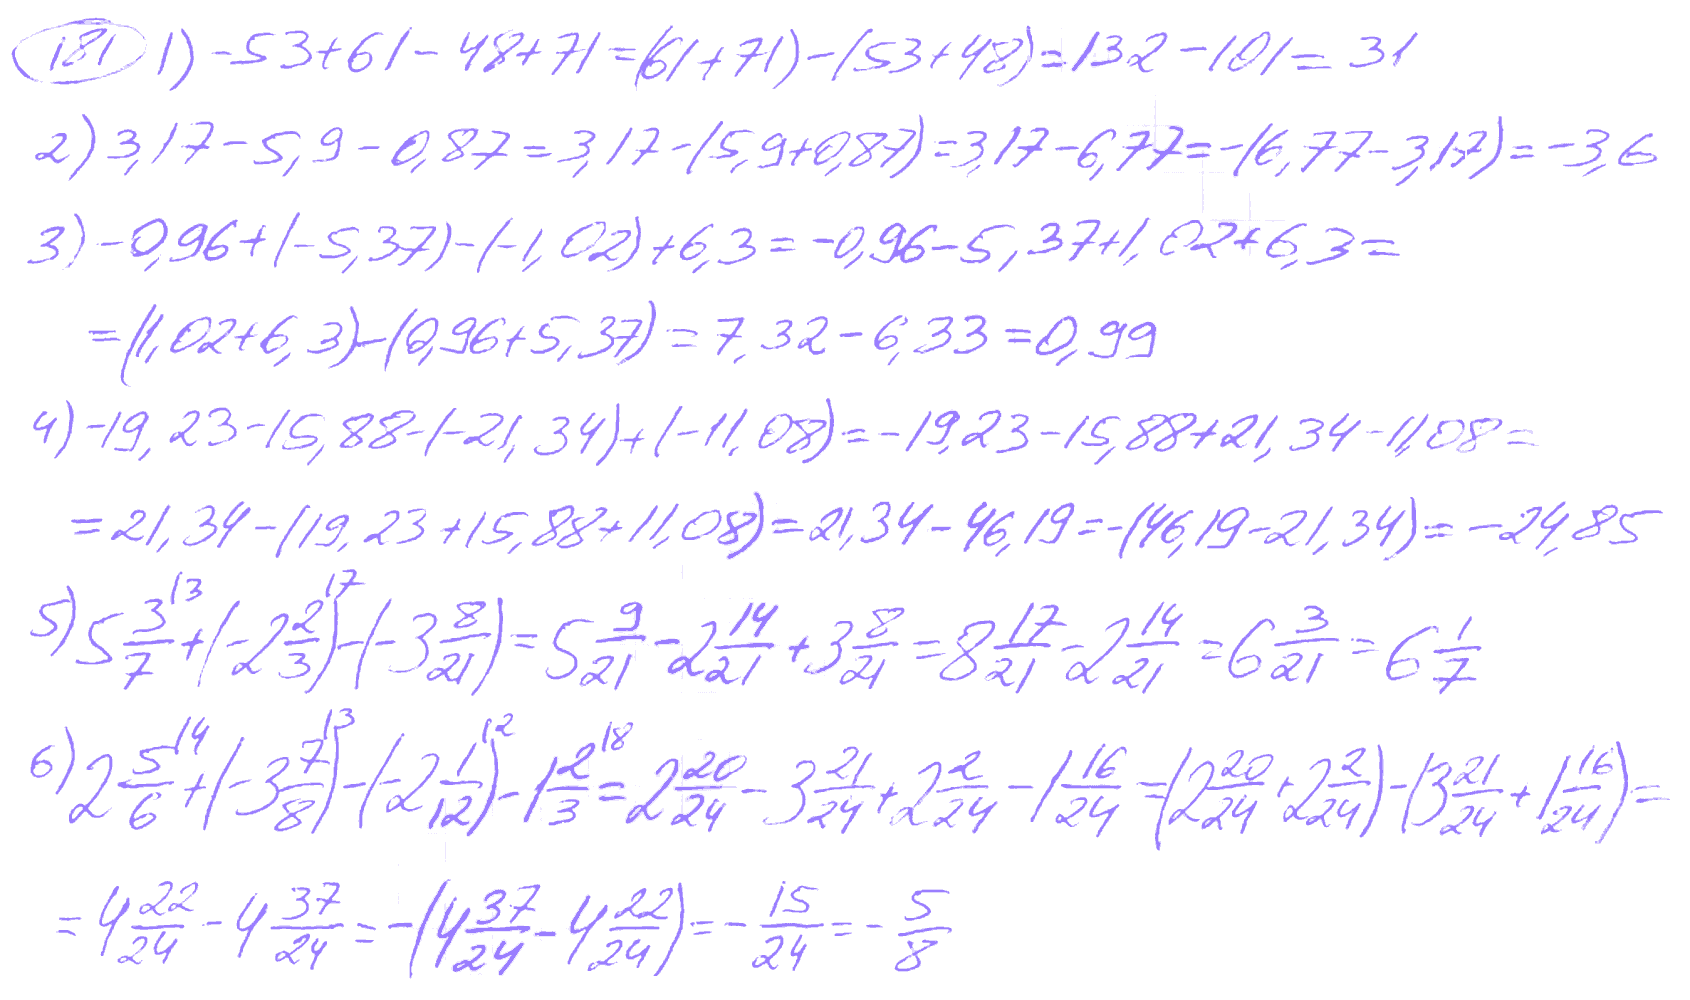 181 1) -53+61-48+71=(61+71)-(53+48)=132-101=31
2) 3,17-5,9-0,87=3,17-(5,9+0,87)=3,17-6,77=-(6,77-3,17)=-3,6
3) -0,96+(-5,37)-(-1,02)+6,3=-0,96-5,37+1,02+6,3=
=(1,02+6,3)-(0,96+5,37)=7,32-6,33=0,99
4) -19,23-15,88-(-21,34)+(-11,08)=-19,23-15,88+21,34-11,08=
=21,34-(19,23+15,88+11,08)=21,34-46,19=-(46,19-21,34)=-24,85
5) 5 3/7 ^(13 + (-2 2/3 ^(17) - (-3 8/21) = 5 9/21 - 2 14/21 + 3 8/21 = 8 17/21 - 2 14/21 = 6 3/21 = 6 1/7
6) 2 5/6 ^(14 + (-3 7/8 ^(13) - (-2 1/12 ^(12) - 1 2/3 ^(18 = 2 20/24 - 3 21/24 + 2 2/24 - 1 16/24 = (2 20/24 + 2 2/24) - (3 21/24 + 1 16/24) =
= 4 22/24 - 4 37/24 = -(4 37/24 - 4 22/24) = - 15/24 = - 5/8